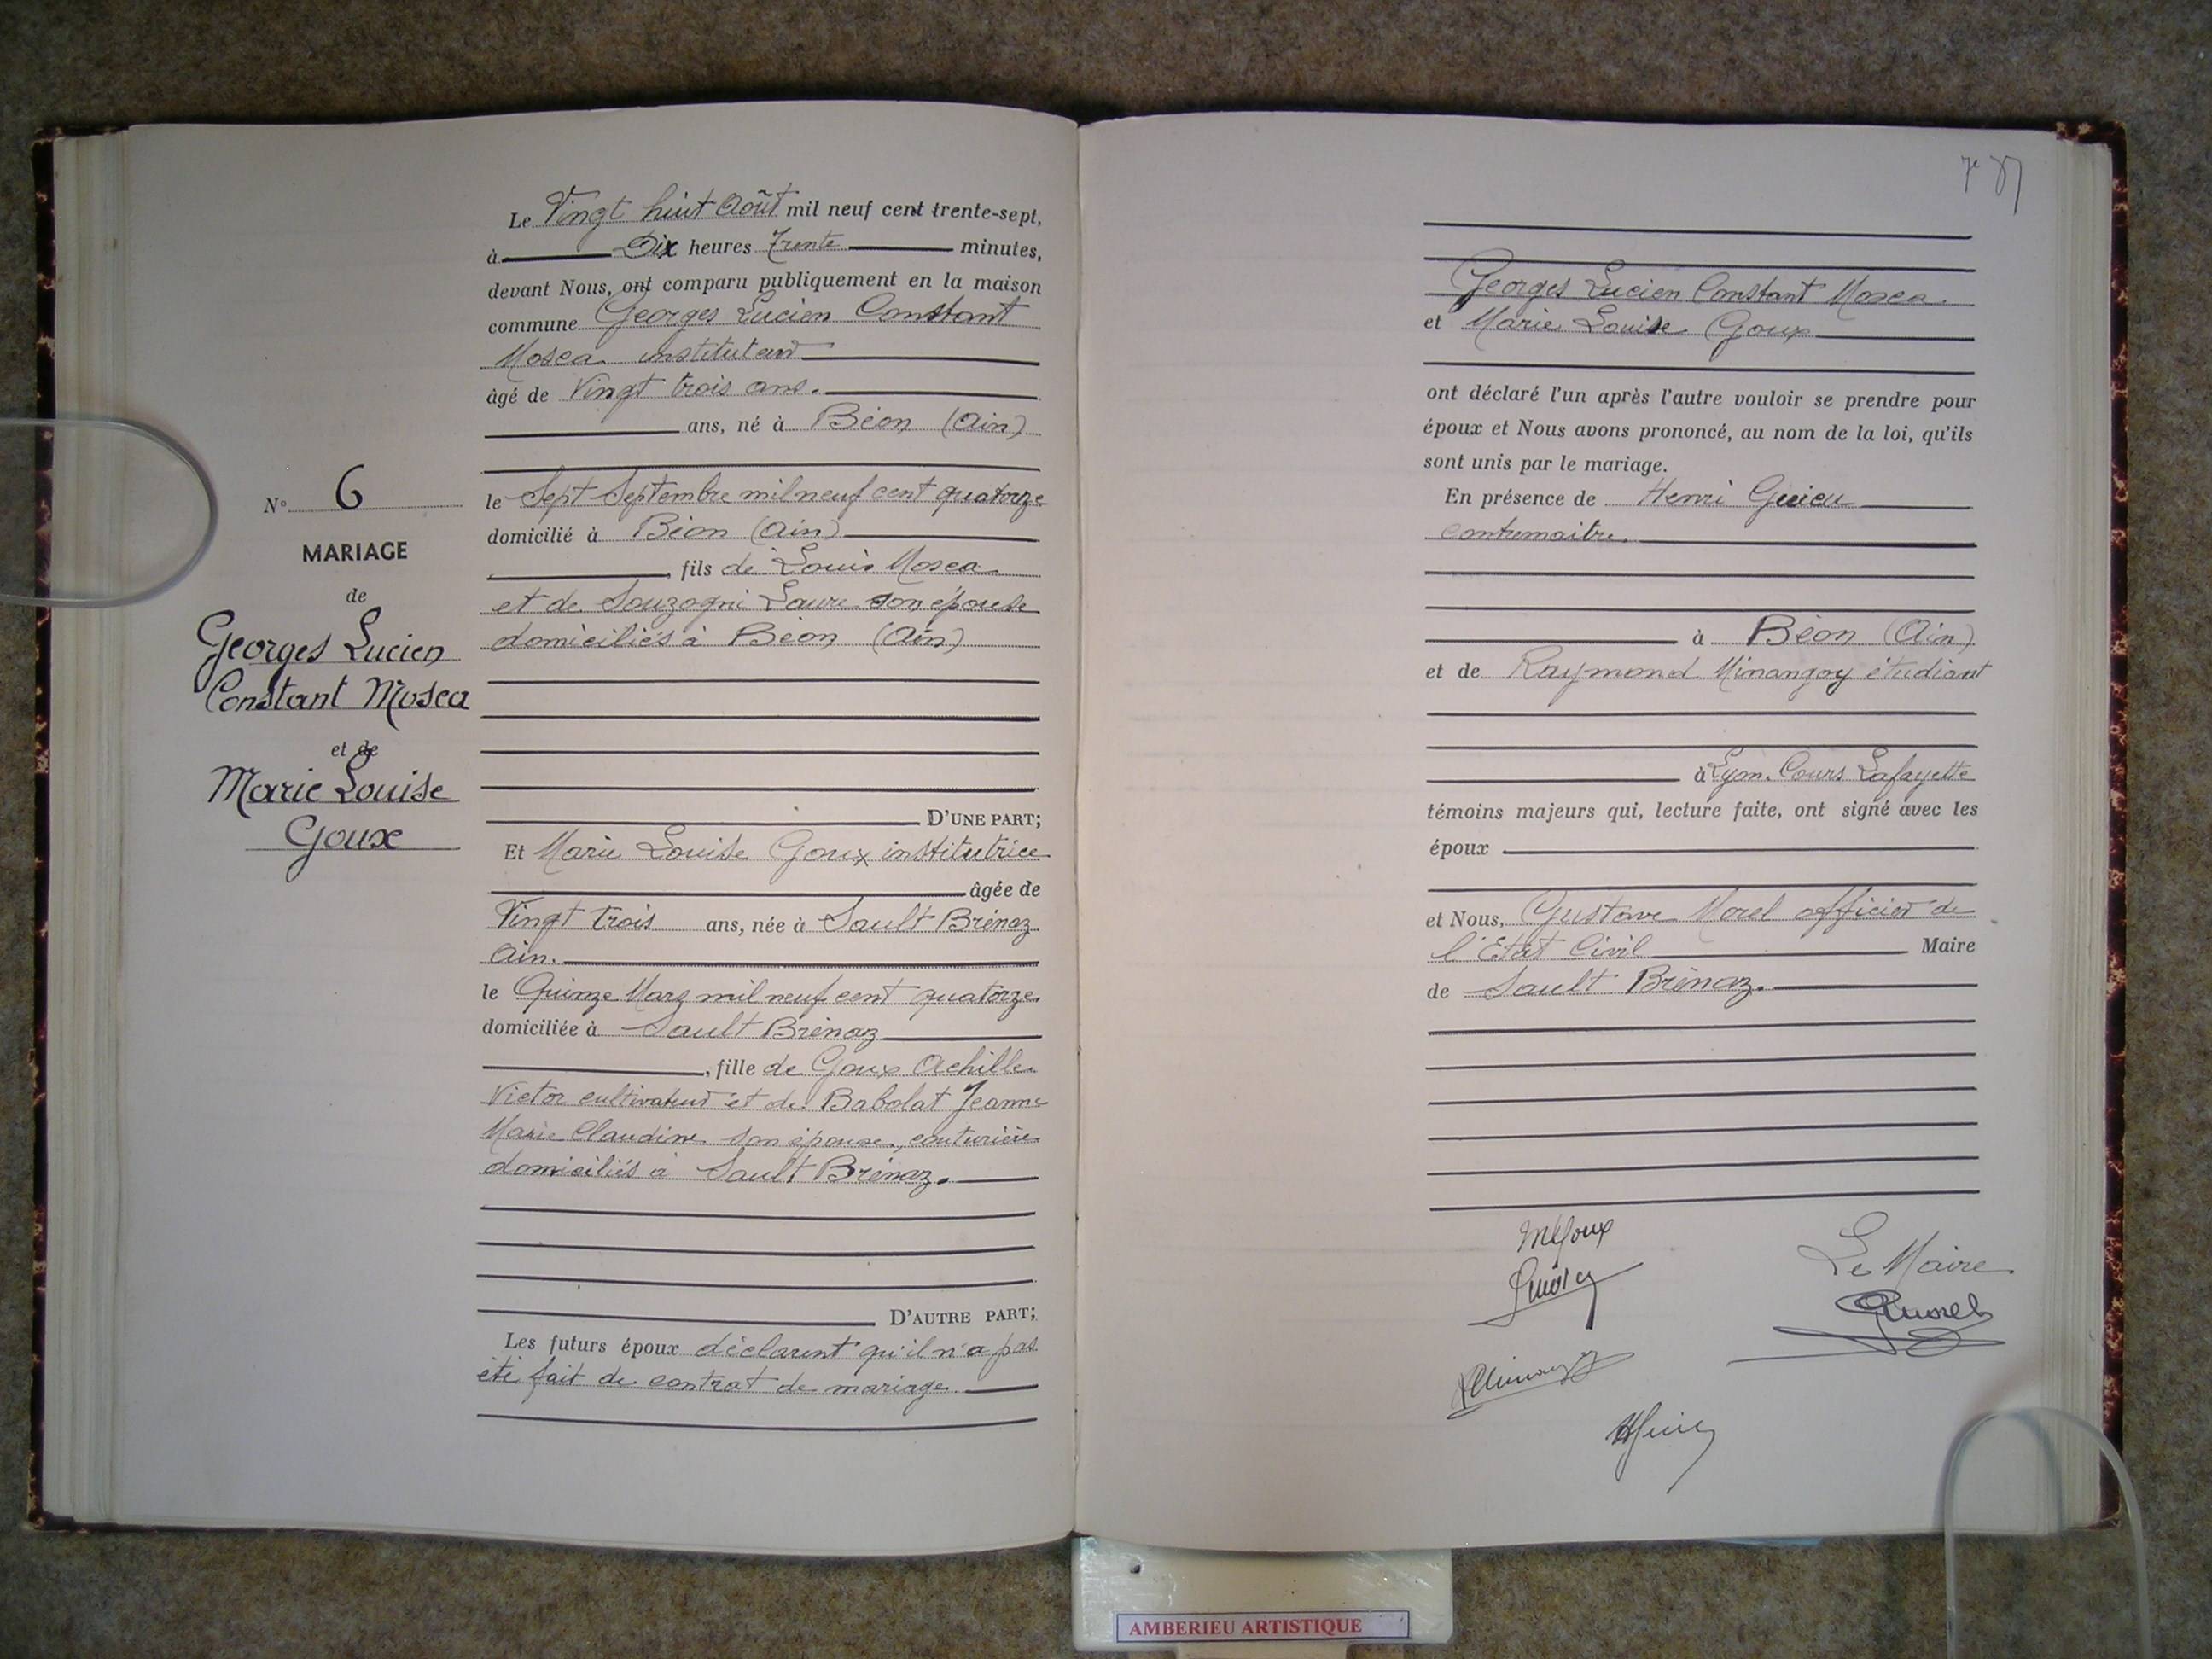 Le Vingt huit Août mil neuf cent trente-sept,
à Dix heures Trente minutes,
devant Nous, ont comparu publiquement en la maison
commune Georges Lucien Constant
Mosca instituteur
âgé de Vingt trois ans.
ans, né à Béon (Ain)
le Sept Septembre mil neuf cent quatorze
domicilié à Béon (Ain)
, fils de Louis Mosca
et de Souzogni Laure son épouse
domiciliés à Béon (Ain)
N° 6
MARIAGE
de
Georges Lucien
Constant Mosca
et de
Marie Louise
Goux
D'UNE PART;
Et Marie Louise Goux institutrice
âgée de
Vingt trois ans, née à Sault Brénaz
Ain.
le Quinze Mars mil neuf cent quatorze
domiciliée à Sault Brénaz
, fille de Goux Achille
Victor cultivateur et de Babolat Jeanne
Marie Claudine son épouse, couturière
domiciliés à Sault Brénaz.
D'AUTRE PART;
Les futurs époux déclarent qu'il n'a pas
été fait de contrat de mariage
Georges Lucien Constant Mosca.
et Marie Louise Goux
ont déclaré l'un après l'autre vouloir se prendre pour
époux et Nous avons prononcé, au nom de la loi, qu'ils
sont unis par le mariage.
En présence de Henri Guieu
contremaitre.
à Béon (Ain)
et de Raymond Minangoy étudiant
à Lyon. Cours Lafayette
témoins majeurs qui, lecture faite, ont signé avec les
époux
et Nous, Gustave Morel officier de
l'Etat Civil Maire
de Sault Brénaz.
MLGoux
Le Maire
GMorel
AMBERIEU ARTISTIQUE